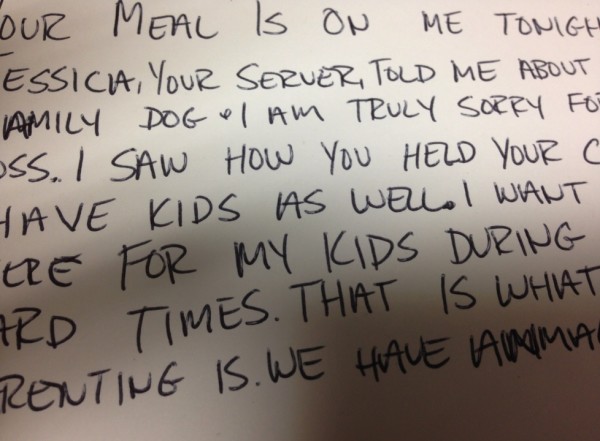 OUR MEAL IS ON ME TONIGH
ESSICIA, YOUR SERVER, TOLD ME ABOUT
AMILY DOG & I AM TRULY SORRY FO
OSS. I SAW HOW YOU HELD YOUR C
HAVE KIDS AS WELL. I WANT
ERE FOR MY KIDS DURING
ARD TIMES. THAT IS WHAT
RENTING IS. WE HAVE ANIMA